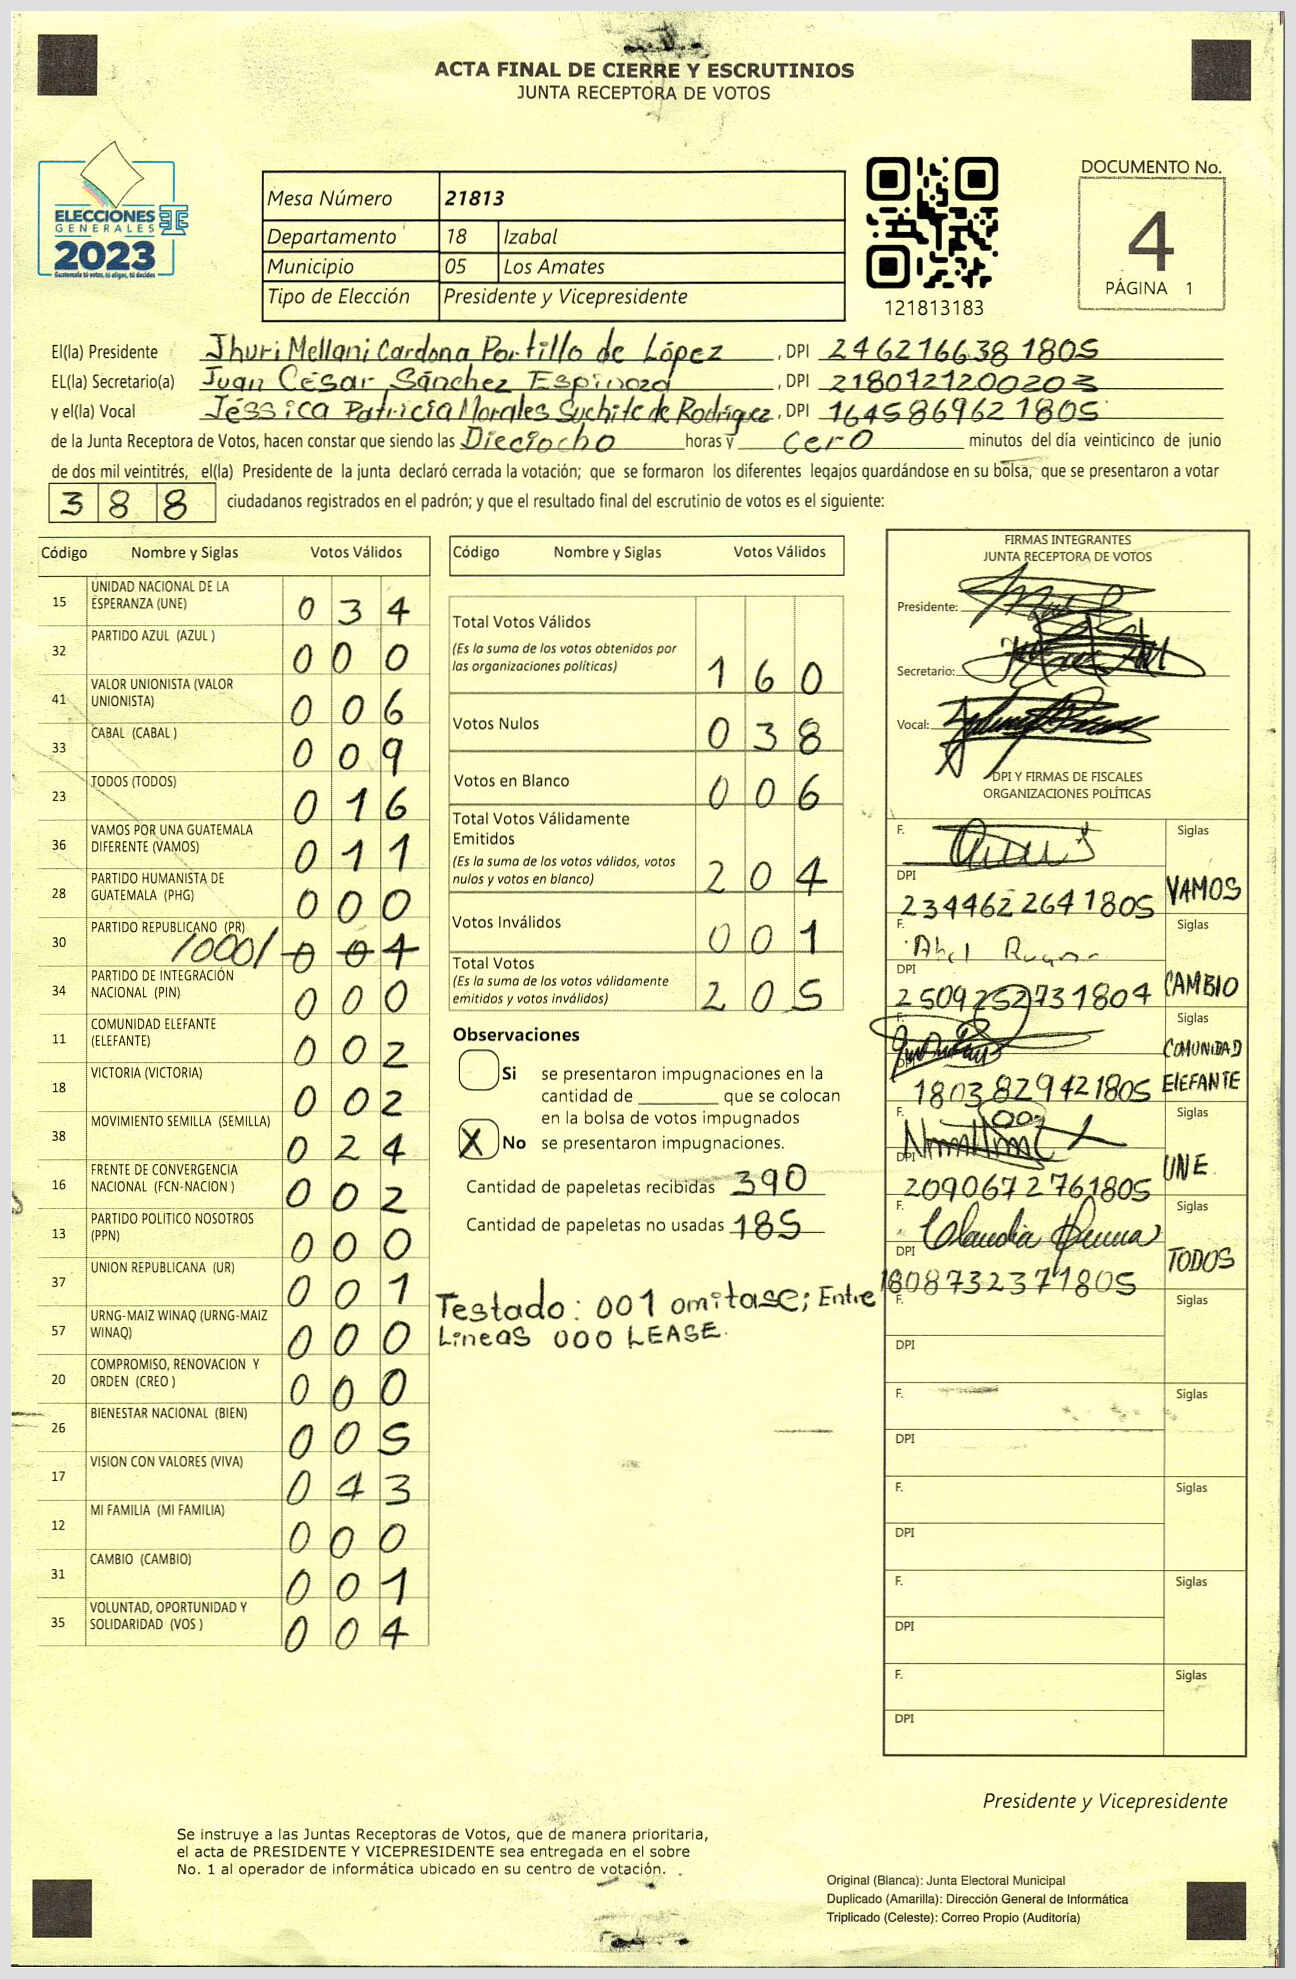 ACTA FINAL DE CIERRE Y ESCRUTINIOS
JUNTA RECEPTORA DE VOTOS
ELECCIONES
GENERALES
2023
Guatemala tú votas, tú eliges, tú decides
Mesa Número 21813
Departamento 18 Izabal
Municipio 05 Los Amates
Tipo de Elección Presidente y Vicepresidente
121813183
DOCUMENTO No.
4
PÁGINA 1
El(la) Presidente Jhuri Mellani Cardona Portillo de López , DPI 246216638 1805
EL(la) Secretario(a) Juan César Sánchez Espinoza , DPI 2180721200203
y el(la) Vocal Jéssica Patricia Morales Suchite de Rodríguez , DPI 164586962 1805
de la Junta Receptora de Votos, hacen constar que siendo las Dieciocho horas y cero minutos del día veinticinco de junio
de dos mil veintitrés, el(la) Presidente de la junta declaró cerrada la votación; que se formaron los diferentes legajos guardándose en su bolsa, que se presentaron a votar
388 ciudadanos registrados en el padrón; y que el resultado final del escrutinio de votos es el siguiente:
Código Nombre y Siglas Votos Válidos
15 UNIDAD NACIONAL DE LA ESPERANZA (UNE) 034
32 PARTIDO AZUL (AZUL ) 000
41 VALOR UNIONISTA (VALOR UNIONISTA) 006
33 CABAL (CABAL ) 009
23 TODOS (TODOS) 016
36 VAMOS POR UNA GUATEMALA DIFERENTE (VAMOS) 011
28 PARTIDO HUMANISTA DE GUATEMALA (PHG) 000
30 PARTIDO REPUBLICANO (PR) /000/
34 PARTIDO DE INTEGRACIÓN NACIONAL (PIN) 000
11 COMUNIDAD ELEFANTE (ELEFANTE) 002
18 VICTORIA (VICTORIA) 002
38 MOVIMIENTO SEMILLA (SEMILLA) 024
16 FRENTE DE CONVERGENCIA NACIONAL (FCN-NACION ) 002
13 PARTIDO POLITICO NOSOTROS (PPN) 000
37 UNION REPUBLICANA (UR) 001
57 URNG-MAIZ WINAQ (URNG-MAIZ WINAQ) 000
20 COMPROMISO, RENOVACION Y ORDEN (CREO ) 000
26 BIENESTAR NACIONAL (BIEN) 005
17 VISION CON VALORES (VIVA) 043
12 MI FAMILIA (MI FAMILIA) 000
31 CAMBIO (CAMBIO) 001
35 VOLUNTAD, OPORTUNIDAD Y SOLIDARIDAD (VOS ) 004
Código Nombre y Siglas Votos Válidos
Total Votos Válidos
(Es la suma de los votos obtenidos por
las organizaciones políticas) 160
Votos Nulos 038
Votos en Blanco 006
Total Votos Válidamente
Emitidos
(Es la suma de los votos válidos, votos
nulos y votos en blanco) 204
Votos Inválidos 001
Total Votos
(Es la suma de los votos válidamente
emitidos y votos inválidos) 205
Observaciones
Si se presentaron impugnaciones en la
cantidad de ________ que se colocan
en la bolsa de votos impugnados
X No se presentaron impugnaciones.
Cantidad de papeletas recibidas 390
Cantidad de papeletas no usadas 185
Testado: 001 omitase; Entre
Lineas 000 LEASE.
FIRMAS INTEGRANTES
JUNTA RECEPTORA DE VOTOS
Presidente:
Secretario:
Vocal:
DPI Y FIRMAS DE FISCALES
ORGANIZACIONES POLÍTICAS
F. Siglas
DPI 234462264 1805 VAMOS
F. Siglas
DPI 2509252731804 CAMBIO
F. Siglas
DPI 1803829421805 COMUNIDAD ElEFANTE
F. Siglas
DPI 2090672761805 UNE
F. Claudia Siglas
DPI 1608732371805 TODOS
F. Siglas
DPI
F. Siglas
DPI
F. Siglas
DPI
F. Siglas
DPI
F. Siglas
DPI
Presidente y Vicepresidente
Se instruye a las Juntas Receptoras de Votos, que de manera prioritaria,
el acta de PRESIDENTE Y VICEPRESIDENTE sea entregada en el sobre
No. 1 al operador de informática ubicado en su centro de votación.
Original (Blanca): Junta Electoral Municipal
Duplicado (Amarilla): Dirección General de Informática
Triplicado (Celeste): Correo Propio (Auditoría)